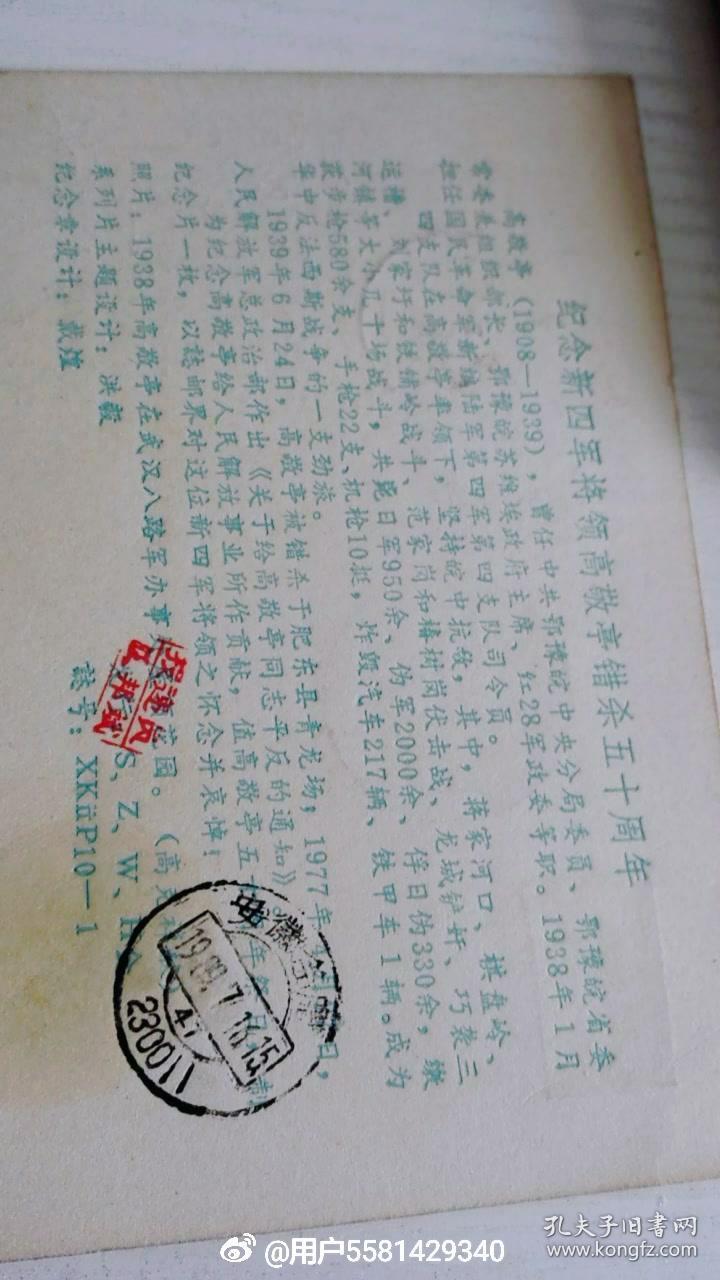 纪念新四军将领高敬亭错杀五十周年
高敬亭（1908—1939），曾任中共鄂豫皖中央分局委员、鄂豫皖省委
常委兼组织部长、鄂豫皖苏维埃政府主席、红28军政委等职。1938年1月
担任国民革命军新编陆军第四军第四支队司令员。
四支队在高敬亭率领下，坚持皖中抗敌，其中，蒋家河口、棋盘岭、
运漕、刘家圩和铁铺岭战斗、范家岗和椿树岗伏击战、龙城铲奸、巧袭三
河镇等大小几十场战斗，共毙日军950余、伪军2000余、俘日伪330余，缴
获步枪580余支、手枪22支、机枪10挺，炸毁汽车217辆、铁甲车1辆。成为
华中反法西斯战争的一支劲旅。
1939年6月24日，高敬亭被错杀于肥东县青龙场；1977年 日，
人民解放军总政治部作出《关于给高敬亭同志平反的通知》
为纪念高敬亭给人民解放事业所作贡献，值高敬亭五 年 制
纪念片一枚，以志邮界对这位新四军将领之怀念并哀悼！
照片：1938年高敬亭在武汉八路军办事 花园。（高
系列片主题设计：洪毅 S、Z、W、H
纪念章设计：戴煌 志号：XKⅡP10—1
安徽合肥
1989.7.16.15
47
230011
@用户5581429340
孔夫子旧书网
www.kongfz.com